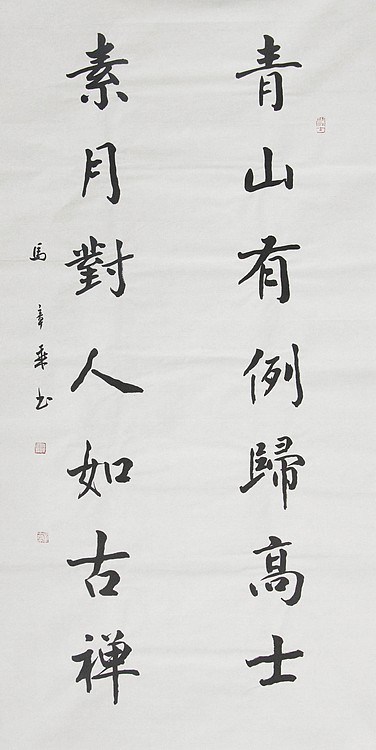 青山有例歸高士
素月對人如古禅
馬章乘书